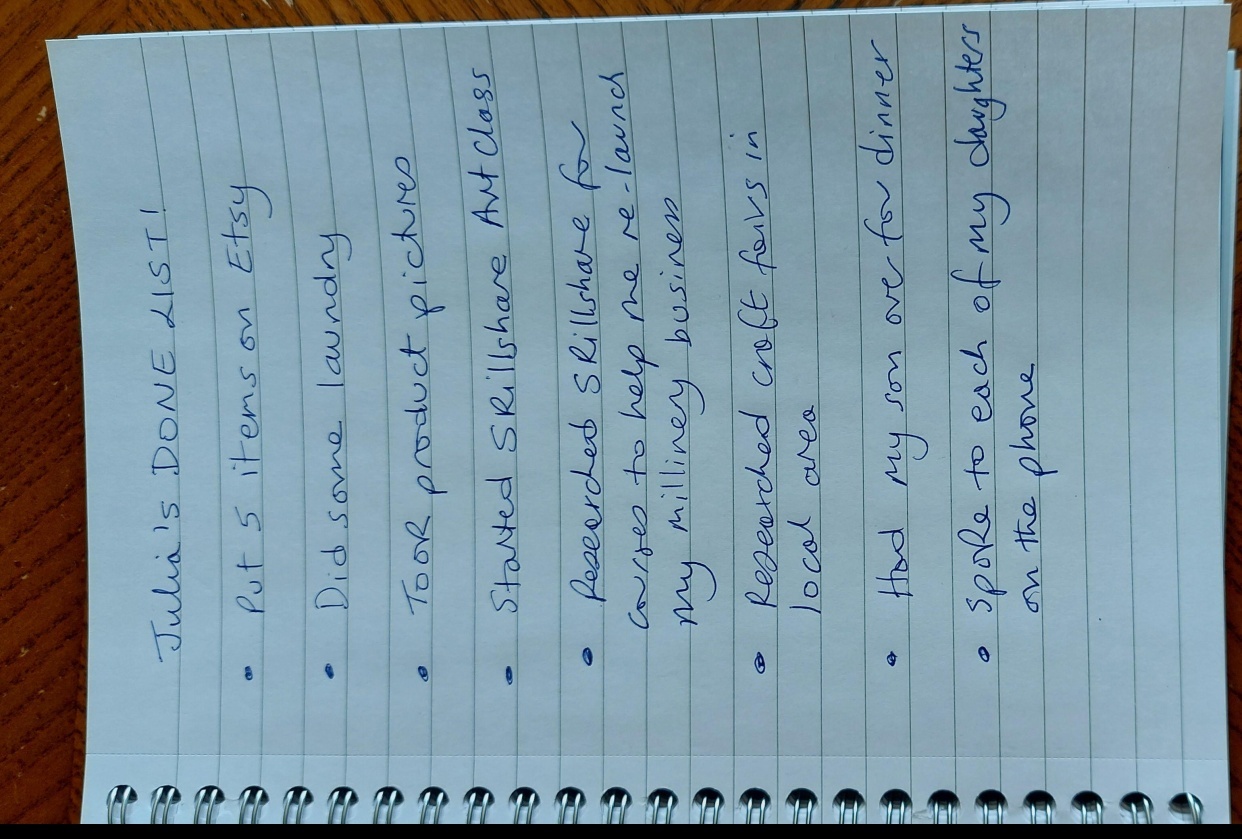 Julia's DONE LIST!
• Put 5 items on Etsy
• Did some laundry
• Took product pictures
• Started Skillshare Art Class
• Researched Skillshare for
courses to help me re-launch
my millinery business
• Researched craft fairs in
local area
• Had my son over for dinner
• Spoke to each of my daughters
on the phone